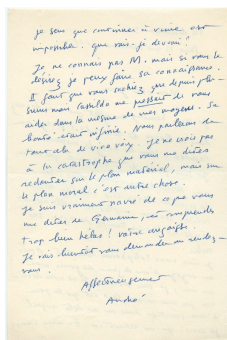 je sens que continuer à vivre est
impossible. que vais-je devenir?
Je ne connais pas M. mais si vous le
désirez je peux faire sa connaissance.
Il faut que vous sachiez que depuis plu-
sieurs mois Casilda me pressait de vous
aider dans la mesure de mes moyens. Sa
bonté était infinie. Nous parlerons de
tout cela de vive voix. Je ne crois pas
à la catastrophe que vous me dites
redouter sur le plan matériel, mais sur
le plan moral c'est autre chose.
Je suis vraiment navré de ce que vous
me dites de Germaine, et comprends
trop bien hélas! votre angoisse.
Je vais bientôt vous demander un rendez-
vous.
Affectueusement
André